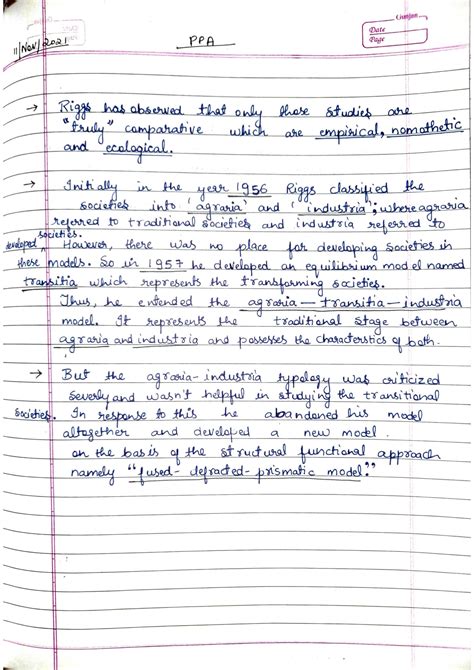 Gunjan
Date
Page
11/Nov/2021
PPA
→ Riggs has observed that only those studies are
"truly" comparative which are empirical, nomothetic
and ecological.
→ Initially in the year 1956 Riggs classified the
societies into 'agraria' and 'industria'; where agraria
referred to traditional societies and industria referred to
developed societies.
However, there was no place for developing societies in
these models. So in 1957 he developed an equilibrium model named
transitia which represents the transforming societies.
Thus, he extended the agraria-transitia-industria
model. It represents the traditional stage between
agraria and industria and possesses the characterstics of both.
→ But the agraria-industria typology was criticized
severly and wasn't helpful in studying the transitional
societies. In response to this he abandoned his model
altogether and developed a new model
on the basis of the structural functional approach
namely "fused-defracted-prismatic model."